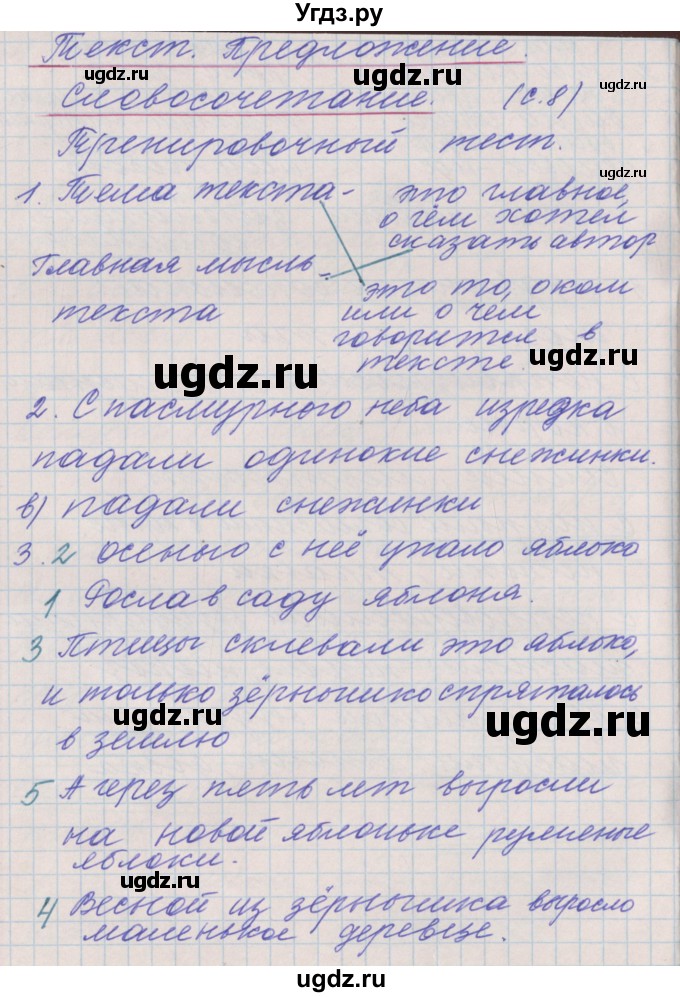 Угдз.ру
Текст. Предложение.
Словосочетание. (с.8)
Тренировочный тест.
1. Тема текста - это главное,
о чём хотел
сказать автор
Главная мысль -
текста
это то, о ком
или о чём
говорится в
тексте.
2. С пасмурного неба изредка
падали одинокие снежинки.
в) падали снежинки
3. 2 осенью с неё упало яблоко
1 Росла в саду яблоня.
3 Птицы склевали это яблоко,
и только зёрнышко спряталось
в землю
5 А через пять лет выросли
на новой яблоньке румяные
яблоки.
4 Весной из зёрнышка выросло
маленькое деревце.
ugdz.ru
ugdz.ru
ugdz.ru
ugdz.ru
ugdz.ru
ugdz.ru
ugdz.ru
ugdz.ru
ugdz.ru
ugdz.ru
ugdz.ru